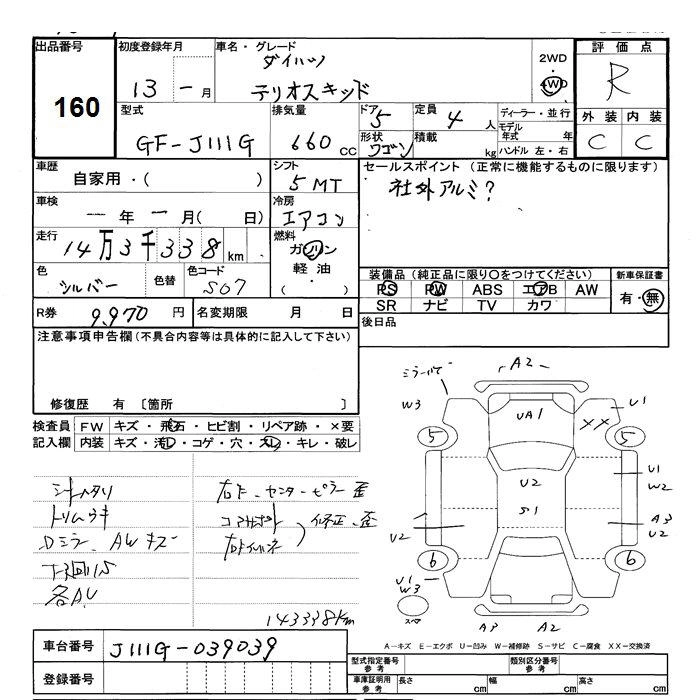 出品番号 初度登録年月 車名・グレード 評価点
160
13 - 月
ダイハツ
テリオスキッド
2WD
4WD
R
型式 排気量 ドア 定員 ディーラー・並行 外装 内装
GF-J111G 660 CC
5 4 人
形状 積載 モデル年式 年
ワゴン kg ハンドル 左・右
C C
車歴 シフト セールスポイント(正常に機能するものに限ります)
自家用・( ) 5MT 社外アルミ?
車検 冷房
一年一月( 日) エアコン
走行 燃料
14万3千338km ガソリン
軽油
色 色替 色コード
シルバー S07
装備品(純正品に限り○をつけてください) 新車保証書
PS PW ABS エアB AW 有・無
SR ナビ TV カワ
R券 9,970 円 名変期限 月 日
後日品
注意事項申告欄(不具合内容等は具体的に記入して下さい)
修復歴 有 〔箇所 〕
検査員 FW キズ・飛石・ヒビ割・リペア跡・×要
記入欄 内装 キズ・汚れ・コゲ・穴・スレ・キレ・破レ
シートヘタリ
トリムウキ
Dミラー、AWキズ
下廻りS
各AU
右F・センターピラー歪
コアサポート
右Fインネ
修正、歪
143338km
A2
W3 UA1 XX U1
5 5
U2 U1
W2
S1
U2 A3
U2
6 6
U1
W3
スペア A3 A2
車台番号 J111G-039039
登録番号
A-キズ E-エクボ U-凹み W-補修跡 S-サビ C-腐食 XX-交換済
型式指定番号 参考 類別区分番号 参考
車庫証明用 参考 長さ cm 幅 cm 高さ cm